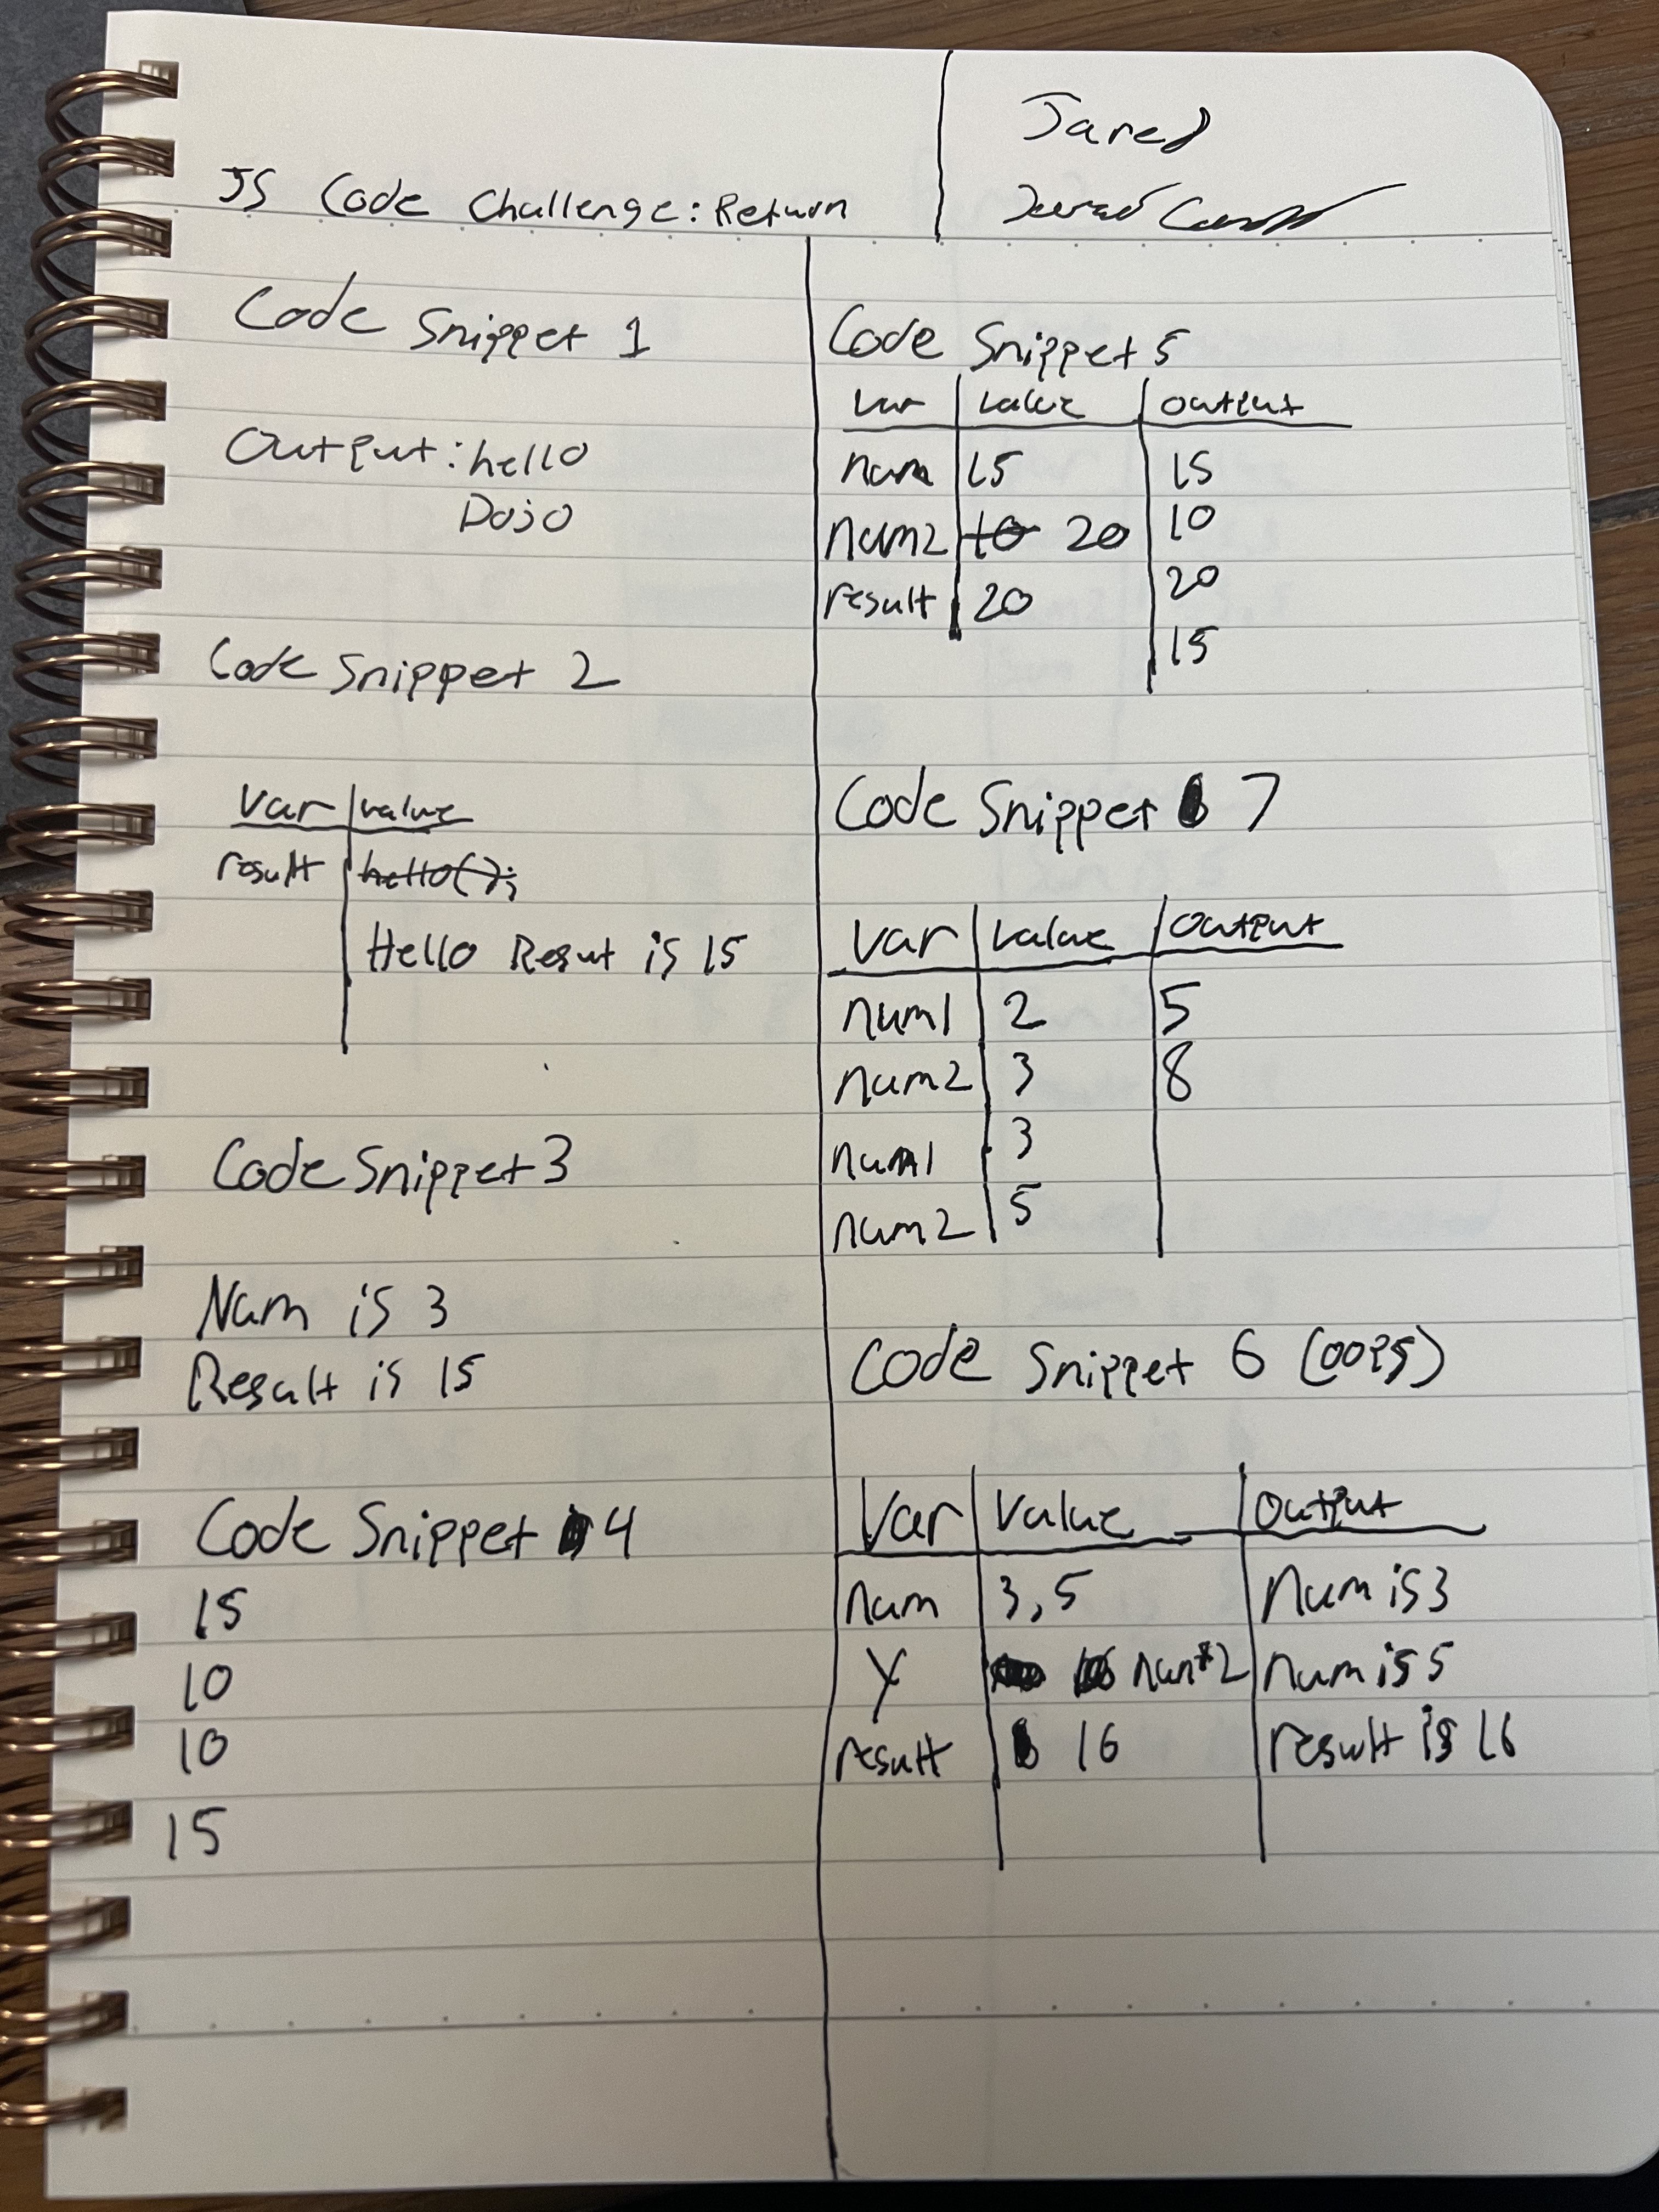 JS Code Challenge: Return
Jared
Code Snippet 1
Output: hello
Dojo
Code Snippet 2
Var value
result hello();
Hello Resut is 15
Code Snippet 3
Num is 3
Result is 15
Code Snippet 4
15
10
10
15
Code Snippet 5
Var value output
num 15 15
num2 10 20 10
result 20 20
15
Code Snippet 7
Var value output
num1 2 5
num2 3 8
num1 3
num2 5
Code Snippet 6 (oops)
Var Value output
num 3,5 Num is 3
Y num*2 num is 5
result 16 result is 16